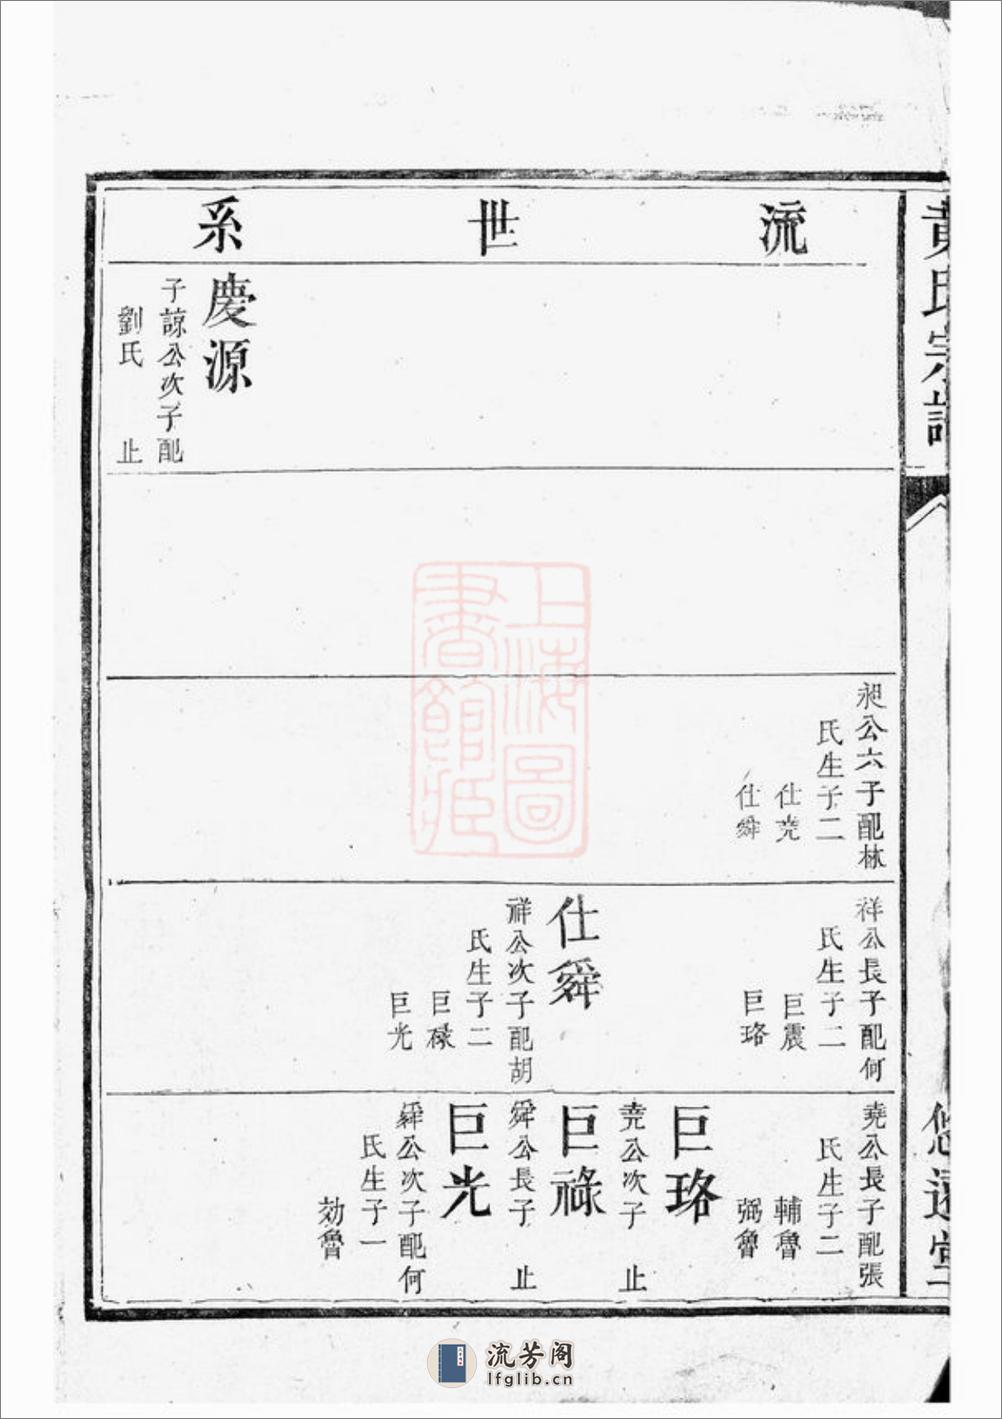 黃氏宗譜
悠遠堂
流世系
慶源
子諒公次子配
劉氏 止
昶公六子配林
氏生子二
仕堯
仕舜
祥公長子配何
氏生子二
巨震
巨珞
仕舜
祥公次子配胡
氏生子二
巨祿
巨光
堯公長子配張
氏生子二
輔魯
弼魯
巨珞
堯公次子 止
巨祿
舜公長子 止
巨光
舜公次子配何
氏生子一
効魯
上海圖
書館藏
流芳阁
lfglib.cn